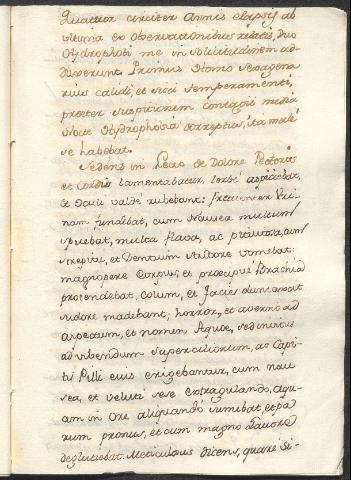 Quattuor circiter Annis elapsis ab
ultima ex observationibus relatis, duo
Hydrophobi me in solicitudinem ad-
duxerunt. Primus Homo sexagena
rius calidi, et sicci temperamenti,
praeter suspitionem contagii media
Nocte Hydrophobia correptus, ita male
se habebat.
Sedens in Lecto de Dolore Pectoris
et Cordis lamentabatur, torvè aspiciebat,
et Oculi valdè rubebant: frequenter Uri-
nam fundebat, cum Nausea multum
spuebat, multa flava, ac pituitosa, cum
strepitu, et Dentium stridore vomebat:
magnopere Corpus, et praecipuè Brachia
protendebat, collum, et Facies dum
sudore madebant; horror, et aversio ad
aspectum, et nomen Aquae, sed invitus
ad bibendum superciliorum, ac Capi-
tis Pilli eius erigebantur, cum nau
sea, et veluti sese extrangulando, aqu-
am in Ore aliquando sumebat, et pa
rum pronus, et cum magno Pavore
deglutiebat. Meticulosus dicens, quare si-